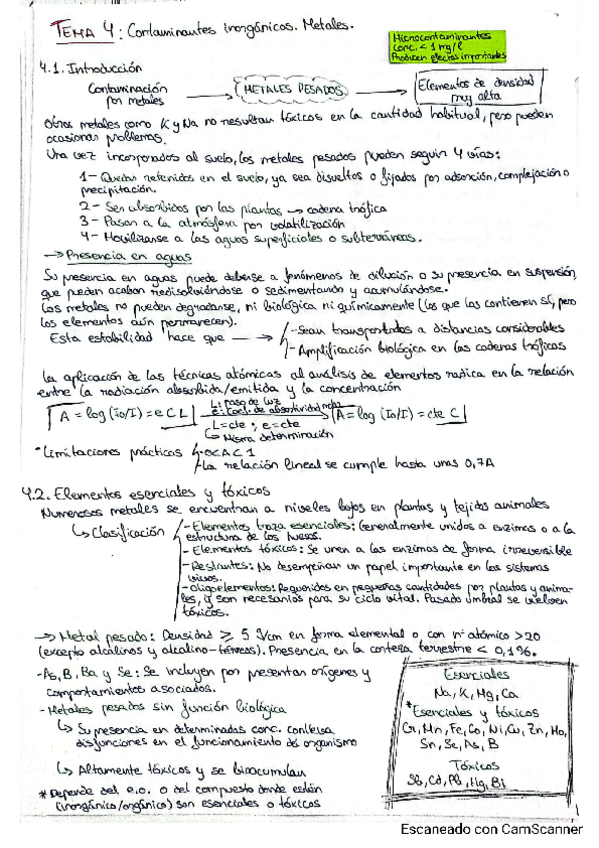 TEMA 4: Contaminantes inorgánicos. Metales.
Microcontaminantes
Conc. < 1 mg/l
Producen efectos importantes
4.1. Introducción
Contaminación por metales → METALES PESADOS → Elementos de densidad muy alta
Otros metales como K y Na no resultan tóxicos en la cantidad habitual, pero pueden
ocasionar problemas.
Una vez incorporados al suelo, los metales pesados pueden seguir 4 vías:
1- Quedar retenidos en el suelo, ya sea disueltos o fijados por adsorción, complejación o
precipitación.
2- Ser absorbidos por las plantas → cadena trófica
3- Pasar a la atmósfera por volatilización
4- Movilizarse a las aguas superficiales o subterráneas.
→ Presencia en aguas
Su presencia en aguas puede deberse a fenómenos de dilución o su presencia en suspensión,
que pueden acabar redisolviéndose o sedimentando y acumulándose.
Los metales no pueden degradarse, ni biológica ni químicamente (los que los contienen sí, pero
los elementos aún permanecen).
Esta estabilidad hace que → - Sean transportados a distancias considerables
- Amplificación biológica en las cadenas tróficas
La aplicación de las técnicas atómicas al análisis de elementos radica en la relación
entre la radiación absorbida/emitida y la concentración
L: paso de luz
A = log (I0/I) = e C L e: coef. de absortividad molar A = log (I0/I) = cte C
L = cte ; e = cte
↳ Misma determinación
* Limitaciones prácticas
La relación lineal se cumple hasta unas 0,7A
4.2. Elementos esenciales y tóxicos
Numerosos metales se encuentran a niveles bajos en plantas y tejidos animales
↳ Clasificación - Elementos traza esenciales: Generalmente unidos a enzimas o a la
estructura de los huesos.
- Elementos tóxicos: Se unen a las enzimas de forma irreversible
- Restantes: No desempeñan un papel importante en los sistemas
vivos.
- Oligoelementos: Requeridos en pequeñas cantidades por plantas y anima-
les, y son necesarios para su ciclo vital. Pasado umbral se vuelven
tóxicos.
→ Metal pesado: Densidad ≥ 5 g/cm en forma elemental o, con nº atómico >20
(excepto alcalinos y alcalino-térreos). Presencia en la corteza terrestre < 0,1%.
- As, B, Ba y Se: Se incluyen por presentar orígenes y
comportamientos asociados.
- Metales pesados sin función biológica
↳ Su presencia en determinadas conc. conlleva
disfunciones en el funcionamiento del organismo
↳ Altamente tóxicos y se bioacumulan
* Depende del e.o. o del compuesto donde están
(inorgánico/orgánico) son esenciales o tóxicos
Esenciales
Na, K, Mg, Ca
* Esenciales y tóxicos
Cr, Mn, Fe, Co, Ni, Cu, Zn, Mo,
Sn, Se, As, B
Tóxicos
Sb, Cd, Pb, Hg, Bi
Escaneado con CamScanner